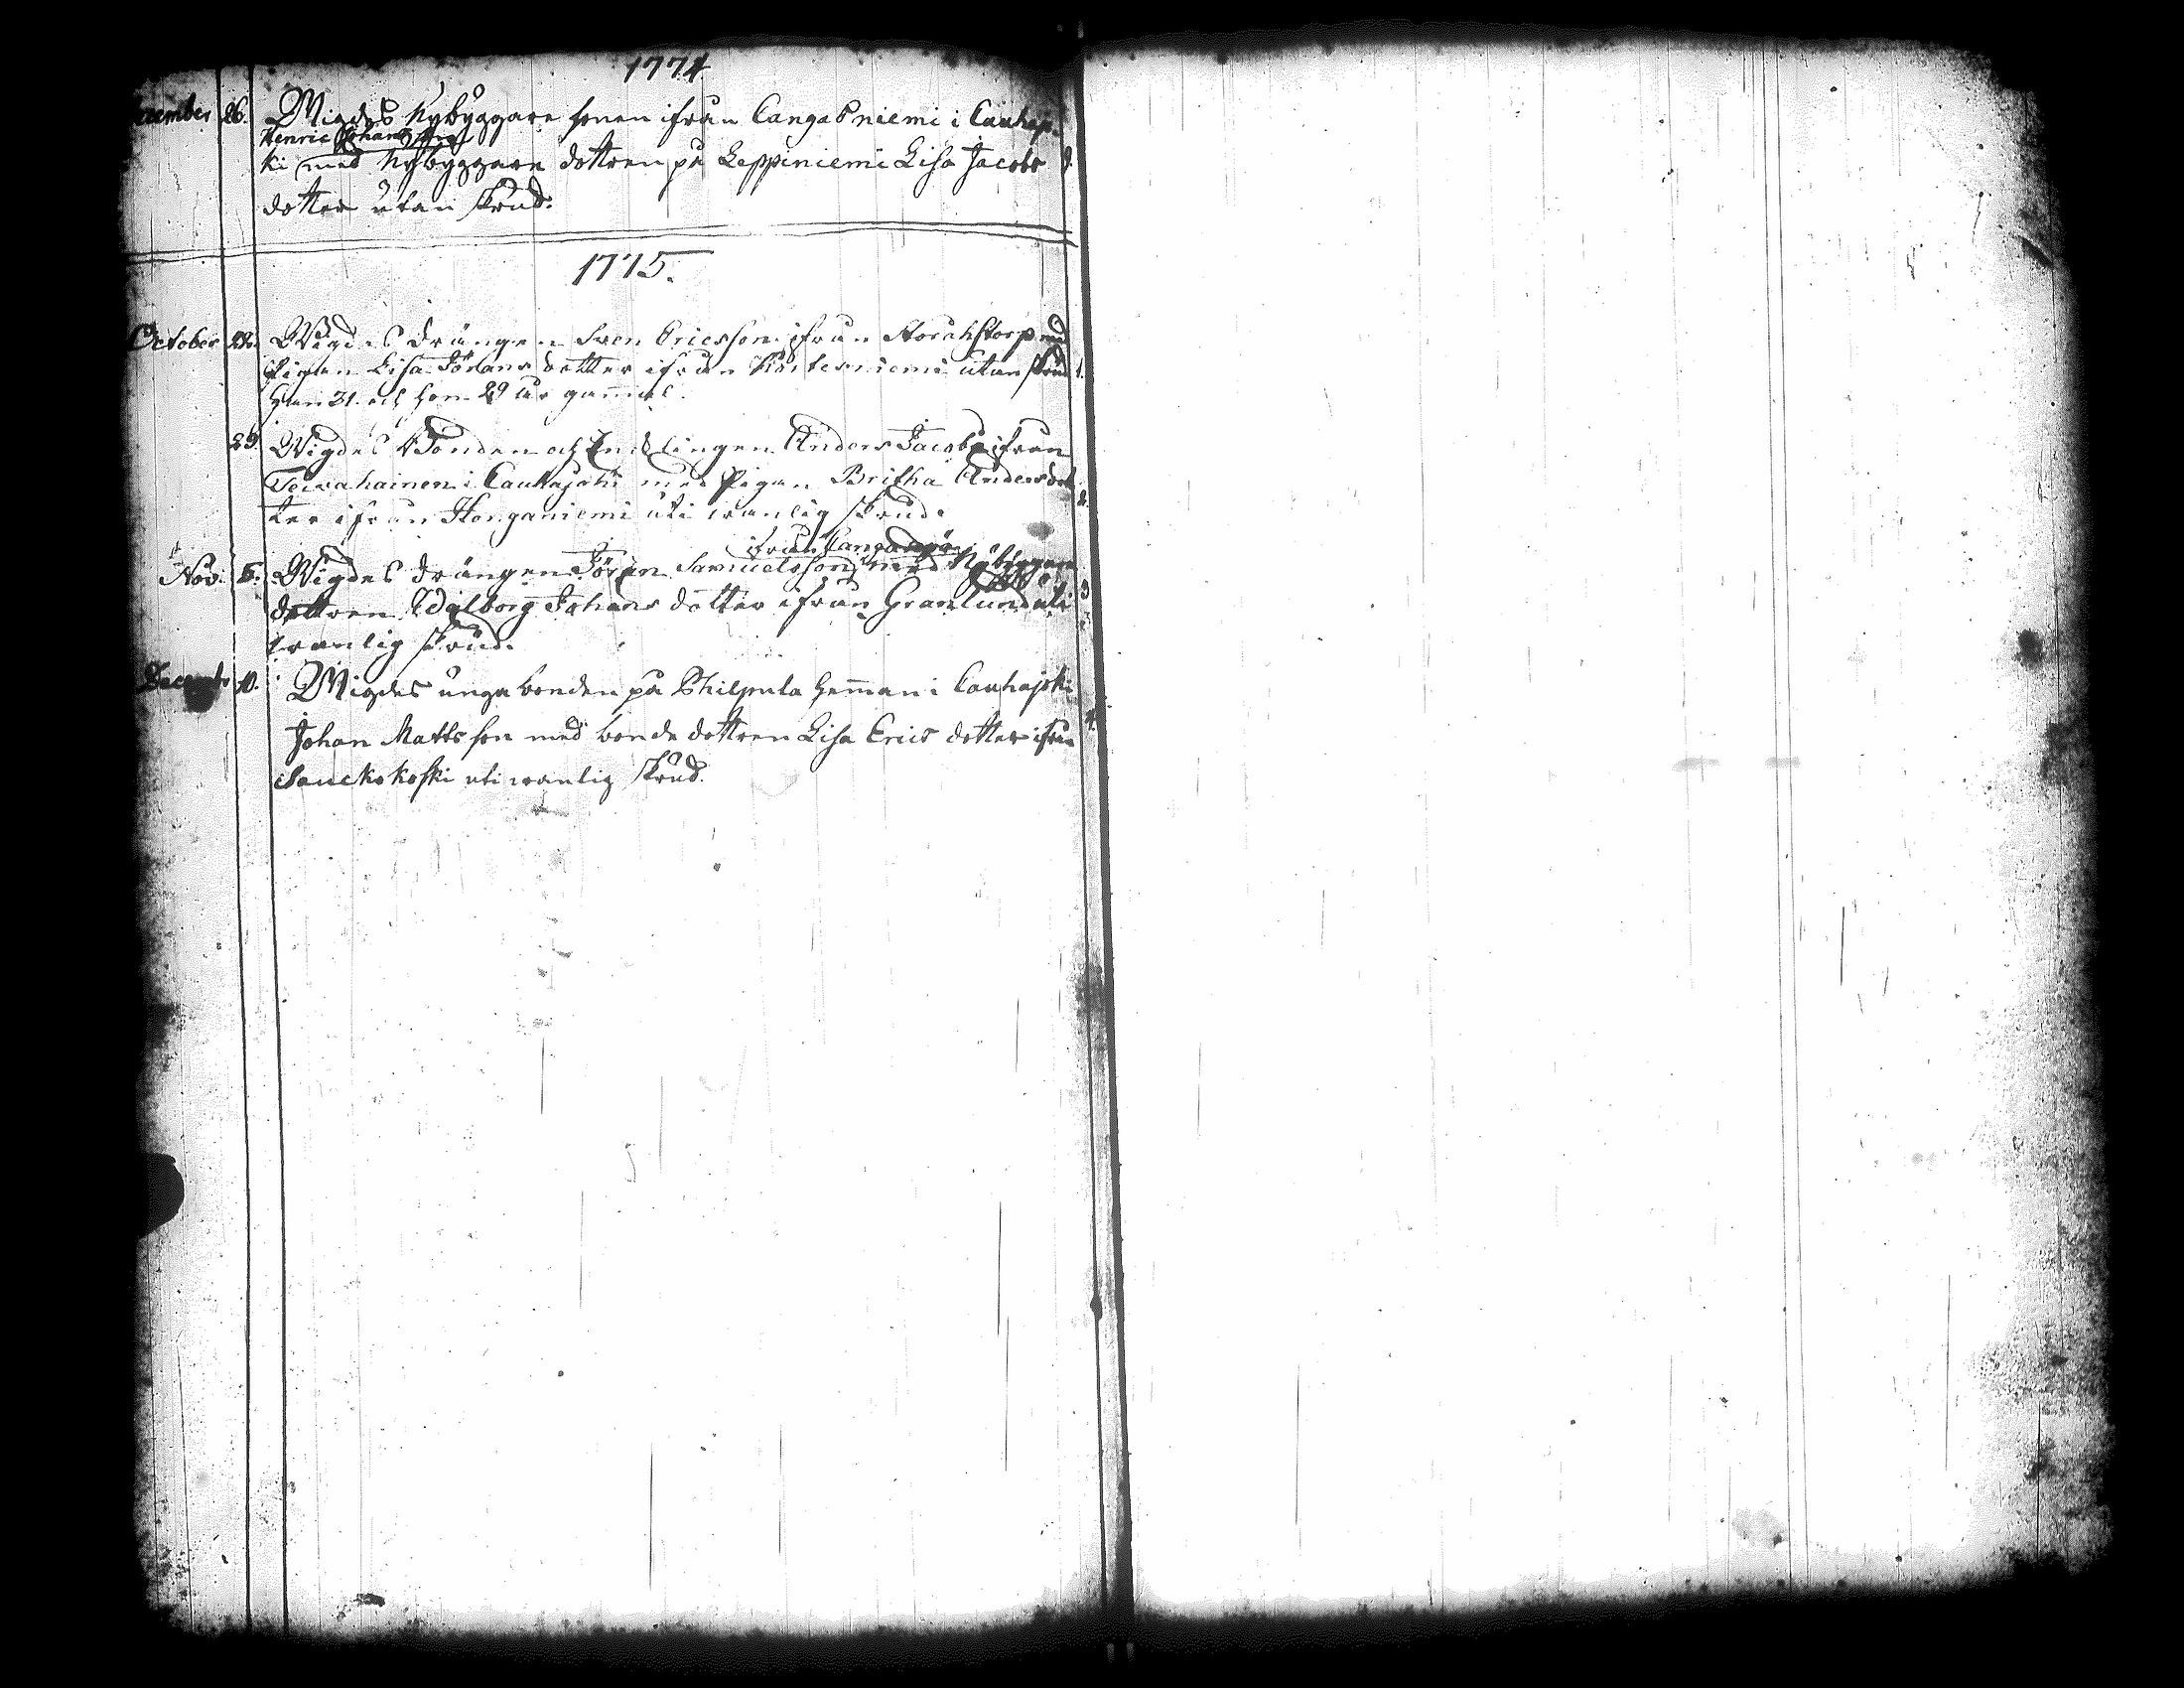 1774
December 26. Wigdes Nybyggare sonen ifrån Cangasniemi i Cauhajo-
Henric Johansson
ki med Nybyggare dottren på Leppiniemi Lisa Jacobs
dotter utan skrud.
1775.
October 22. Wigdes drängen Sven Ericsson ifrån Storahstorp med
Pigan Lisa Jörans dotter ifrån Kortesniemi utan skrud 1.
Han 31. och hon 29 år gammal.
29. Wigdes Bonden och Enklingen Anders Jacobs. ifrån
Teivahainen i Cauhajoki med Pigan Britha Andersdot-
ter ifrån Honganiemi uti wanlig skrud. 2.
ifrån Cangas
Nov. 5. Wigdes drängen Jöran Samuelsson med Nybyggare
dottren Walborg Johans dotter ifrån Granlund uti 3.
wanlig skrud.
December 10. Wigdes unga bonden på Philpula heman i Cauhajoki
Johan Matts son med bonde dottren Lisa Erics dotter ifrån 4.
Sauckokoski uti wanlig skrud.